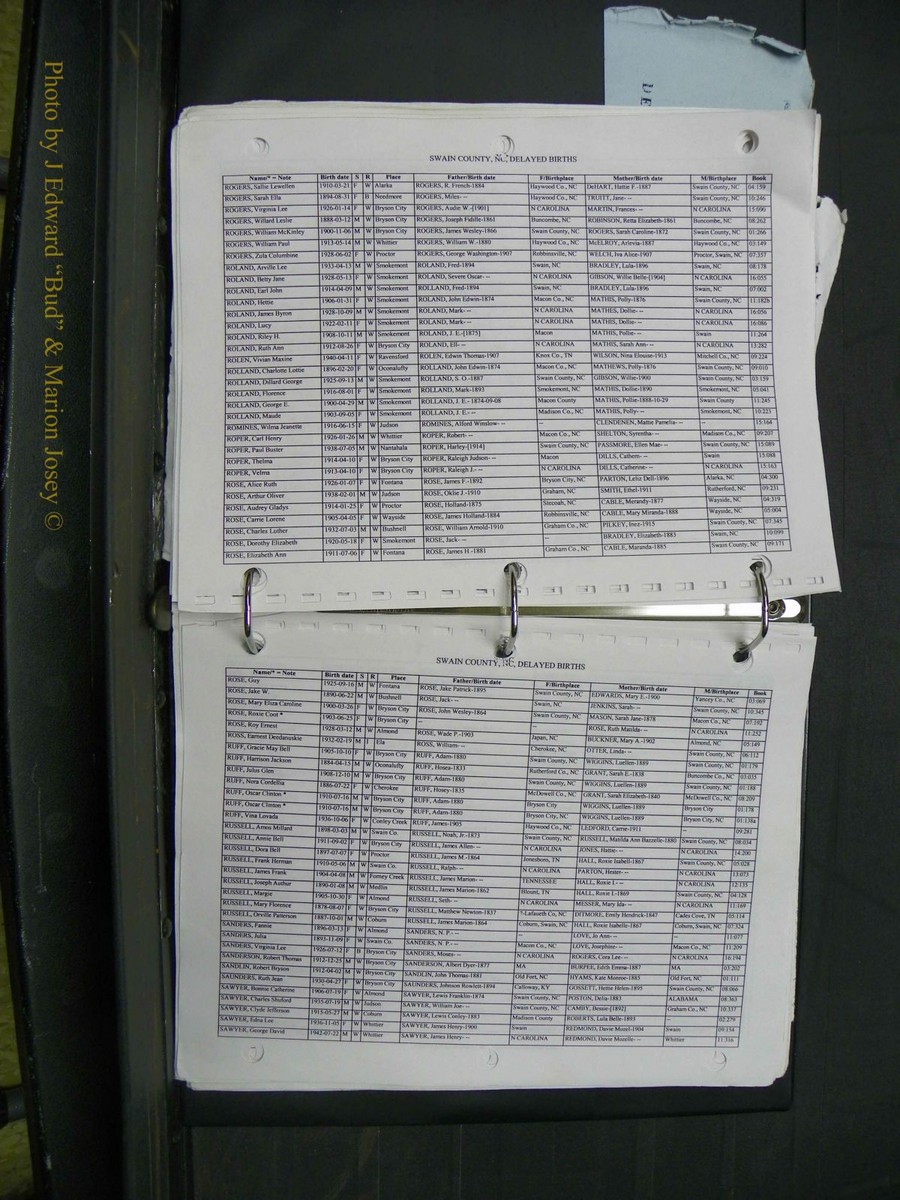 Photo by J Edward "Bud" & Marion Josey ©
SWAIN COUNTY, NC, DELAYED BIRTHS
Name/* = Note Birth date S R Place Father/Birth date F/Birthplace Mother/Birth date M/Birthplace Book
ROGERS, Sallie Lewellen 1910-03-21 F W Alarka ROGERS, R. French-1884 Haywood Co., NC DeHART, Hattie F.-1887 Swain County, NC 04:159
ROGERS, Sarah Ella 1894-08-31 F B Needmore ROGERS, Miles- -- Haywood Co., NC TRUITT, Jane- -- Swain County, NC 10:246
ROGERS, Virginia Lee 1926-01-14 F W Bryson City ROGERS, Audie W.-[1901] N CAROLINA MARTIN, Frances- -- N CAROLINA 15:090
ROGERS, Willard Leslie 1888-03-12 M W Bryson City ROGERS, Joseph Fidille-1861 Buncombe, NC ROBINSON, Retta Elizabeth-1861 Buncombe, NC 08:262
ROGERS, William McKinley 1900-11-06 M W Bryson City ROGERS, James Wesley-1866 Swain County, NC ROGERS, Sarah Caroline-1872 Swain County, NC 01:266
ROGERS, William Paul 1913-05-14 M W Whittier ROGERS, William W.-1880 Haywood Co., NC McELROY, Arlevia-1887 Haywood Co., NC 03:149
ROGERS, Zula Columbine 1928-06-02 F W Proctor ROGERS, George Washington-1907 Robbinsville, NC WELCH, Iva Alice-1907 Proctor, Swain, NC 07:357
ROLAND, Arville Lee 1933-04-13 M W Smokemont ROLAND, Fred-1894 Swain, NC BRADLEY, Lula-1896 Swain, NC 08:178
ROLAND, Betty Jane 1928-05-13 F W Smokemont ROLAND, Severe Oscar- -- N CAROLINA GIBSON, Willie Belle-[1904] N CAROLINA 16:055
ROLAND, Earl John 1914-04-09 M W Smokemont ROLLAND, Fred-1894 Swain, NC BRADLEY, Lula-1896 Swain, NC 07:002
ROLAND, Hettie 1906-01-31 F W Smokemont ROLAND, John Edwin-1874 Macon Co., NC MATHIS, Polly-1876 Swain County, NC 11:182b
ROLAND, James Byron 1928-10-09 M W Smokemont ROLAND, Mark- -- N CAROLINA MATHES, Dollie- -- N CAROLINA 16:056
ROLAND, Lucy 1922-02-11 F W Smokemont ROLAND, Mark- -- N CAROLINA MATHIS, Dollie- -- N CAROLINA 16:086
ROLAND, Riley H. 1908-10-11 M W Smokemont ROLAND, J. E.-[1875] Macon MATHIS, Pollie- -- Swain 11:264
ROLAND, Ruth Ann 1912-08-26 F W Bryson City ROLAND, Ell- -- N CAROLINA MATHIS, Sarah Ann- -- N CAROLINA 13:282
ROLEN, Vivian Maxine 1940-04-11 F W Ravensford ROLEN, Edwin Thomas-1907 Knox Co., TN WILSON, Nina Elouise-1913 Mitchell Co., NC 09:224
ROLLAND, Charlotte Lottie 1896-02-20 F W Oconalufty ROLLAND, John Edwin-1874 Macon Co., NC MATHEWS, Polly-1876 Swain Co., NC 09:010
ROLLAND, Dillard George 1925-09-13 M W Smokemont ROLLAND, S. O.-1887 Swain County, NC GIBSON, Willie-1900 Swain County, NC 03:159
ROLLAND, Florence 1916-08-01 F W Smokemont ROLLAND, Mark-1893 Smokemont, NC MATHIS, Dollie-1890 Smokemont, NC 05:041
ROLLAND, George E. 1900-04-29 M W Smokemont ROLLAND, J. E.- 1874-09-08 Macon County MATHIS, Pollie-1888-10-29 Swain County 11:245
ROLLAND, Maude 1903-09-05 F W Smokemont ROLLAND, J. E.- -- Madison Co., NC MATHIS, Polly- -- Smokemont, NC 10:223
ROMINES, Wilma Jeanette 1916-06-15 F W Judson ROMINES, Alford Winslow- -- -- CLENDENEN, Mattie Pamelia- -- -- 15:164
ROPER, Carl Henry 1926-01-26 M W Whittier ROPER, Robert- -- Macon Co., NC SHELTON, Syrentha- -- Madison Co., NC 09:203
ROPER, Paul Buster 1938-07-05 M W Nantahala ROPER, Harley-[1914] Swain County, NC PASSMORE, Ellen Mae- -- Swain County, NC 15:089
ROPER, Thelma 1914-04-10 F W Bryson City ROPER, Raleigh Judson- -- Macon DILLS, Cathern- -- Swain 15:088
ROPER, Velma 1913-04-10 F W Bryson City ROPER, Raleigh J.- -- N CAROLINA DILLS, Catherine- -- N CAROLINA 15:163
ROSE, Alice Ruth 1926-01-07 F W Fontana ROSE, James F.-1892 Bryson City, NC PARTON, Leliz Dell-1896 Alarka, NC 04:300
ROSE, Arthur Oliver 1938-02-01 M W Judson ROSE, Oklie J.-1910 Graham, NC SMITH, Ethel-1911 Rutherford, NC 09:231
ROSE, Audrey Gladys 1914-01-25 F W Proctor ROSE, Holland-1875 Stecoah, NC CABLE, Merandy-1877 Wayside, NC 04:319
ROSE, Carrie Lorene 1905-04-05 F W Wayside ROSE, James Holland-1884 Robbinsville, NC CABLE, Mary Miranda-1888 Wayside, NC 05:004
ROSE, Charles Luther 1932-07-03 M W Bushnell ROSE, William Arnold-1910 Graham Co., NC PILKEY, Inez-1915 Swain County, NC 07:345
ROSE, Dorothy Elizabeth 1920-05-18 F W Smokemont ROSE, Jack- -- -- BRADLEY, Elizabeth-1883 Swain, NC 10:099
ROSE, Elizabeth Ann 1911-07-06 F W Fontana ROSE, James H.-1881 Graham Co., NC CABLE, Maranda-1885 Swain County, NC 09:171
SWAIN COUNTY, NC, DELAYED BIRTHS
Name/* = Note Birth date S R Place Father/Birth date F/Birthplace Mother/Birth date M/Birthplace Book
ROSE, Guy 1925-09-16 M W Fontana ROSE, Jake Patrick-1895 Swain County, NC EDWARDS, Mary E.-1900 Yancey Co., NC 03:069
ROSE, Jake W. 1890-06-22 M W Bushnell ROSE, Jack- -- Swain County, NC JENKINS, Sarah- -- Swain County, NC 10:345
ROSE, Mary Eliza Caroline 1900-03-26 F W Bryson City ROSE, John Wesley-1864 Swain County, NC MASON, Sarah Jane-1878 Macon Co., NC 07:192
ROSE, Roxie Coot * 1903-06-25 F W Bryson City -- -- ROSE, Ruth Matilda- -- N CAROLINA 11:252
ROSE, Roy Ernest 1928-03-12 M W Almond ROSE, Wade P.-1903 Japan, NC BUCKNER, Mary A.-1902 Almond, NC 05:149
ROSS, Earnest Deedanuskie 1932-02-19 M I Ela ROSS, William- -- Cherokee, NC OTTER, Linda- -- Swain County, NC 06:112
RUFF, Gracie May Bell 1905-10-10 F W Bryson City RUFF, Adam-1880 Swain County, NC WIGGINS, Luellen-1889 Swain County, NC 01:179
RUFF, Harrison Jackson 1884-04-15 M W Oconalufty RUFF, Hosea-1833 Rutherford Co., NC GRANT, Sarah E.-1838 Buncombe Co., NC 03:035
RUFF, Julus Glen 1908-12-10 M W Bryson City RUFF, Adam-1880 Swain County, NC WIGGINS, Luellen-1889 Swain County, NC 01:188
RUFF, Nora Cordellia 1886-07-22 F W Cherokee RUFF, Hosey-1835 McDowell Co., NC GRANT, Sarah Elizabeth-1840 McDowell Co., NC 08:209
RUFF, Oscar Clinton * 1910-07-16 M W Bryson City RUFF, Adam-1880 Bryson City WIGGINS, Luellen-1889 Bryson City 01:178
RUFF, Oscar Clinton * 1910-07-16 M W Bryson City RUFF, Adam-1880 Bryson City, NC WIGGINS, Luellen-1889 Bryson City, NC 01:138a
RUFF, Vina Levada 1936-10-06 F W Conley Creek RUFF, James-1905 Haywood Co., NC LEDFORD, Carrie-1911 -- 09:281
RUSSELL, Amos Millard 1898-03-03 M W Swain Co. RUSSELL, Noah, Jr.-1873 Swain County, NC RUSSELL, Matilda Ann Bazzelle-1880 Swain County, NC 08:034
RUSSELL, Annie Bell 1911-09-02 F W Bryson City RUSSELL, James Allen- -- N CAROLINA JONES, Hattie- -- N CAROLINA 14:200
RUSSELL, Dora Bell 1897-07-07 F W Proctor RUSSELL, James M.-1864 Jonesboro, TN HALL, Roxie Isabell-1867 Swain County, NC 05:028
RUSSELL, Frank Herman 1910-05-06 M W Swain Co. RUSSELL, Ralph- -- N CAROLINA PARTON, Hester- -- N CAROLINA 13:073
RUSSELL, James Frank 1904-04-08 M W Forney Creek RUSSELL, James Marion- -- TENNESSEE HALL, Roxie I.- -- N CAROLINA 12:135
RUSSELL, Joseph Authur 1890-01-08 M W Medlin RUSSELL, James Marion-1862 Blount, TN HALL, Roxie I.-1869 Swain County, NC 04:128
RUSSELL, Margie 1905-10-30 F W Almond RUSSELL, Seth- -- N CAROLINA MESSER, Mary Ida- -- N CAROLINA 11:169
RUSSELL, Mary Florence 1878-08-07 F W Bryson City RUSSELL, Matthew Newton-1837 ?-Lafaorth Co, NC DITMORE, Emily Hendrick-1847 Cades Cove, TN 05:114
RUSSELL, Orville Patterson 1887-10-01 M W Coburn RUSSELL, James Marion-1864 Coburn, Swain, NC HALL, Roxie Isabelle-1867 Coburn, Swain, NC 07:324
SANDERS, Fannie 1896-03-13 F W Almond SANDERS, N. P.- -- -- LOVE, Jo Ann- -- -- 11:077
SANDERS, Julia 1893-11-09 F W Swain Co. SANDERS, N. P.- -- Macon Co., NC LOVE, Josephine- -- Macon Co., NC 11:209
SANDERS, Virginia Lee 1926-07-12 F B Bryson City SANDERS, Moses- -- N CAROLINA ROGERS, Cora Lee- -- N CAROLINA 16:194
SANDERSON, Robert Thomas 1912-12-25 M W Bryson City SANDERSON, Albert Dyer-1877 MA BURPEE, Edith Emma-1887 MA 03:202
SANDLIN, Robert Bryson 1912-04-02 M W Bryson City SANDLIN, John Thomas-1881 Old Fort, NC HYAMS, Kate Monroe-1885 Old Fort, NC 01:311
SAUNDERS, Ruth Jean 1930-04-27 F W Bryson City SAUNDERS, Johnson Rowlett-1894 Calloway, KY GOSSETT, Hettie Helen-1895 Swain County, NC 08:066
SAWYER, Bonnie Catherine 1906-07-19 F W Almond SAWYER, Lewis Franklin-1874 Swain County, NC POSTON, Delia-1883 ALABAMA 08:363
SAWYER, Charles Shuford 1935-07-19 M W Judson SAWYER, William Joe- -- Swain County, NC CAMBY, Bessie-[1892] Graham Co., NC 10:337
SAWYER, Clyde Jefferson 1915-05-27 M W Coburn SAWYER, Lewis Conley-1883 Madison County ROBERTS, Lula Belle-1893 -- 02:279
SAWYER, Edna Lee 1936-11-05 F W Whittier SAWYER, James Henry-1900 Swain REDMOND, Davie Mozel-1904 Swain 09:134
SAWYER, George David 1942-07-22 M W Whittier SAWYER, James Henry- -- N CAROLINA REDMOND, Davie Mozelle- -- Whittier 11:316